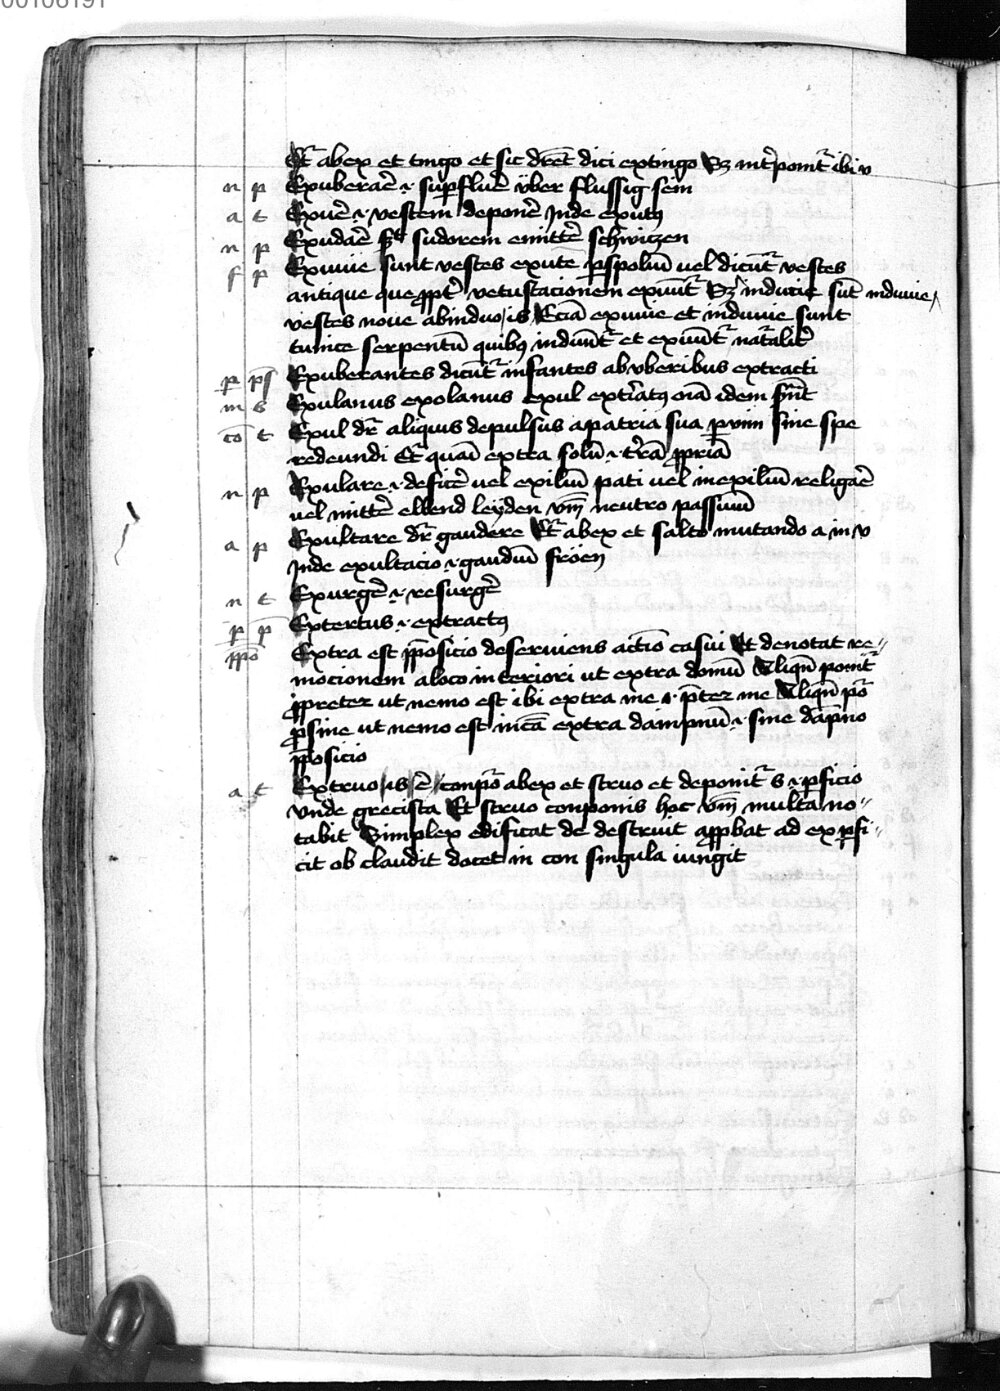 00106191
Et abex et tingo et sic dr̄et dici extingo Sꝫ int̄ponit᷑ ibi v
n p Exuberar̄e .i. suꝑfluer̄e v̈ber flussig sein
a t Exuer̄e .i. vestem deponer̄e Inde exutꝰ
n p Exudar̄e sudorem emitter̄e schwiczen
f p Exuuie sunt vestes exute ꝑ spoliū uel dicūt᷑ vestes
antique que ꝓpt̄ vetustacionem exuūt᷑ Sꝫ induuie sūt induuie
vestes noue ab induo / is Eciā exuuie et induuie sunt
tunice serpentū quibꝰ induūt᷑ et exuūt᷑ nat᷑alit̄
ꝑ p̄s Exuberantes dicūt᷑ infantes ab vberibus extracti
m s Exulanus exolanus exul ext̄ratꝰ oīa idem sūt
cō t Exul dr̄ aliquis depulsus a patria sua ꝑ vim sine spe
redeundi Et quasi extra solū .i. t̄rā ꝓpriā
n p Exulare .i. deficer̄e uel exiliū pati uel in exiliū religar̄e
uel mitter̄e ellend leÿden vm̄ neutro passiuū
a p Exultare dr̄ gaudere Et abex et salto mutando a in v
Inde exultacio .i. gaudiū fröen
n t Exurger̄e .i. resurger̄e
p p̄ Extertus .i. extractꝰ
p̄pō Extra est p̄posicio deseruiens act̄io casui Et denotat re-
mocionem a loco interiori ut extra domū Aliqn̄ ponit᷑
ꝓ preter ut nemo est ibi extra me .i. p̄ter me Aliqn̄ pō
ꝓ sine ut nemo est in cā extra dampnū .i. sine dāpno
p̄posicio
a t Extruo / is / ē / conpō abex et struo et deponit᷑ s .i. ꝑficio
vnde grecista Et struo conponis hoc vm̄ multa no-
tabit Simplex edificat de destruit apꝓbat ad ex ꝑfi-
cit ob claudit docet in con singula iungit